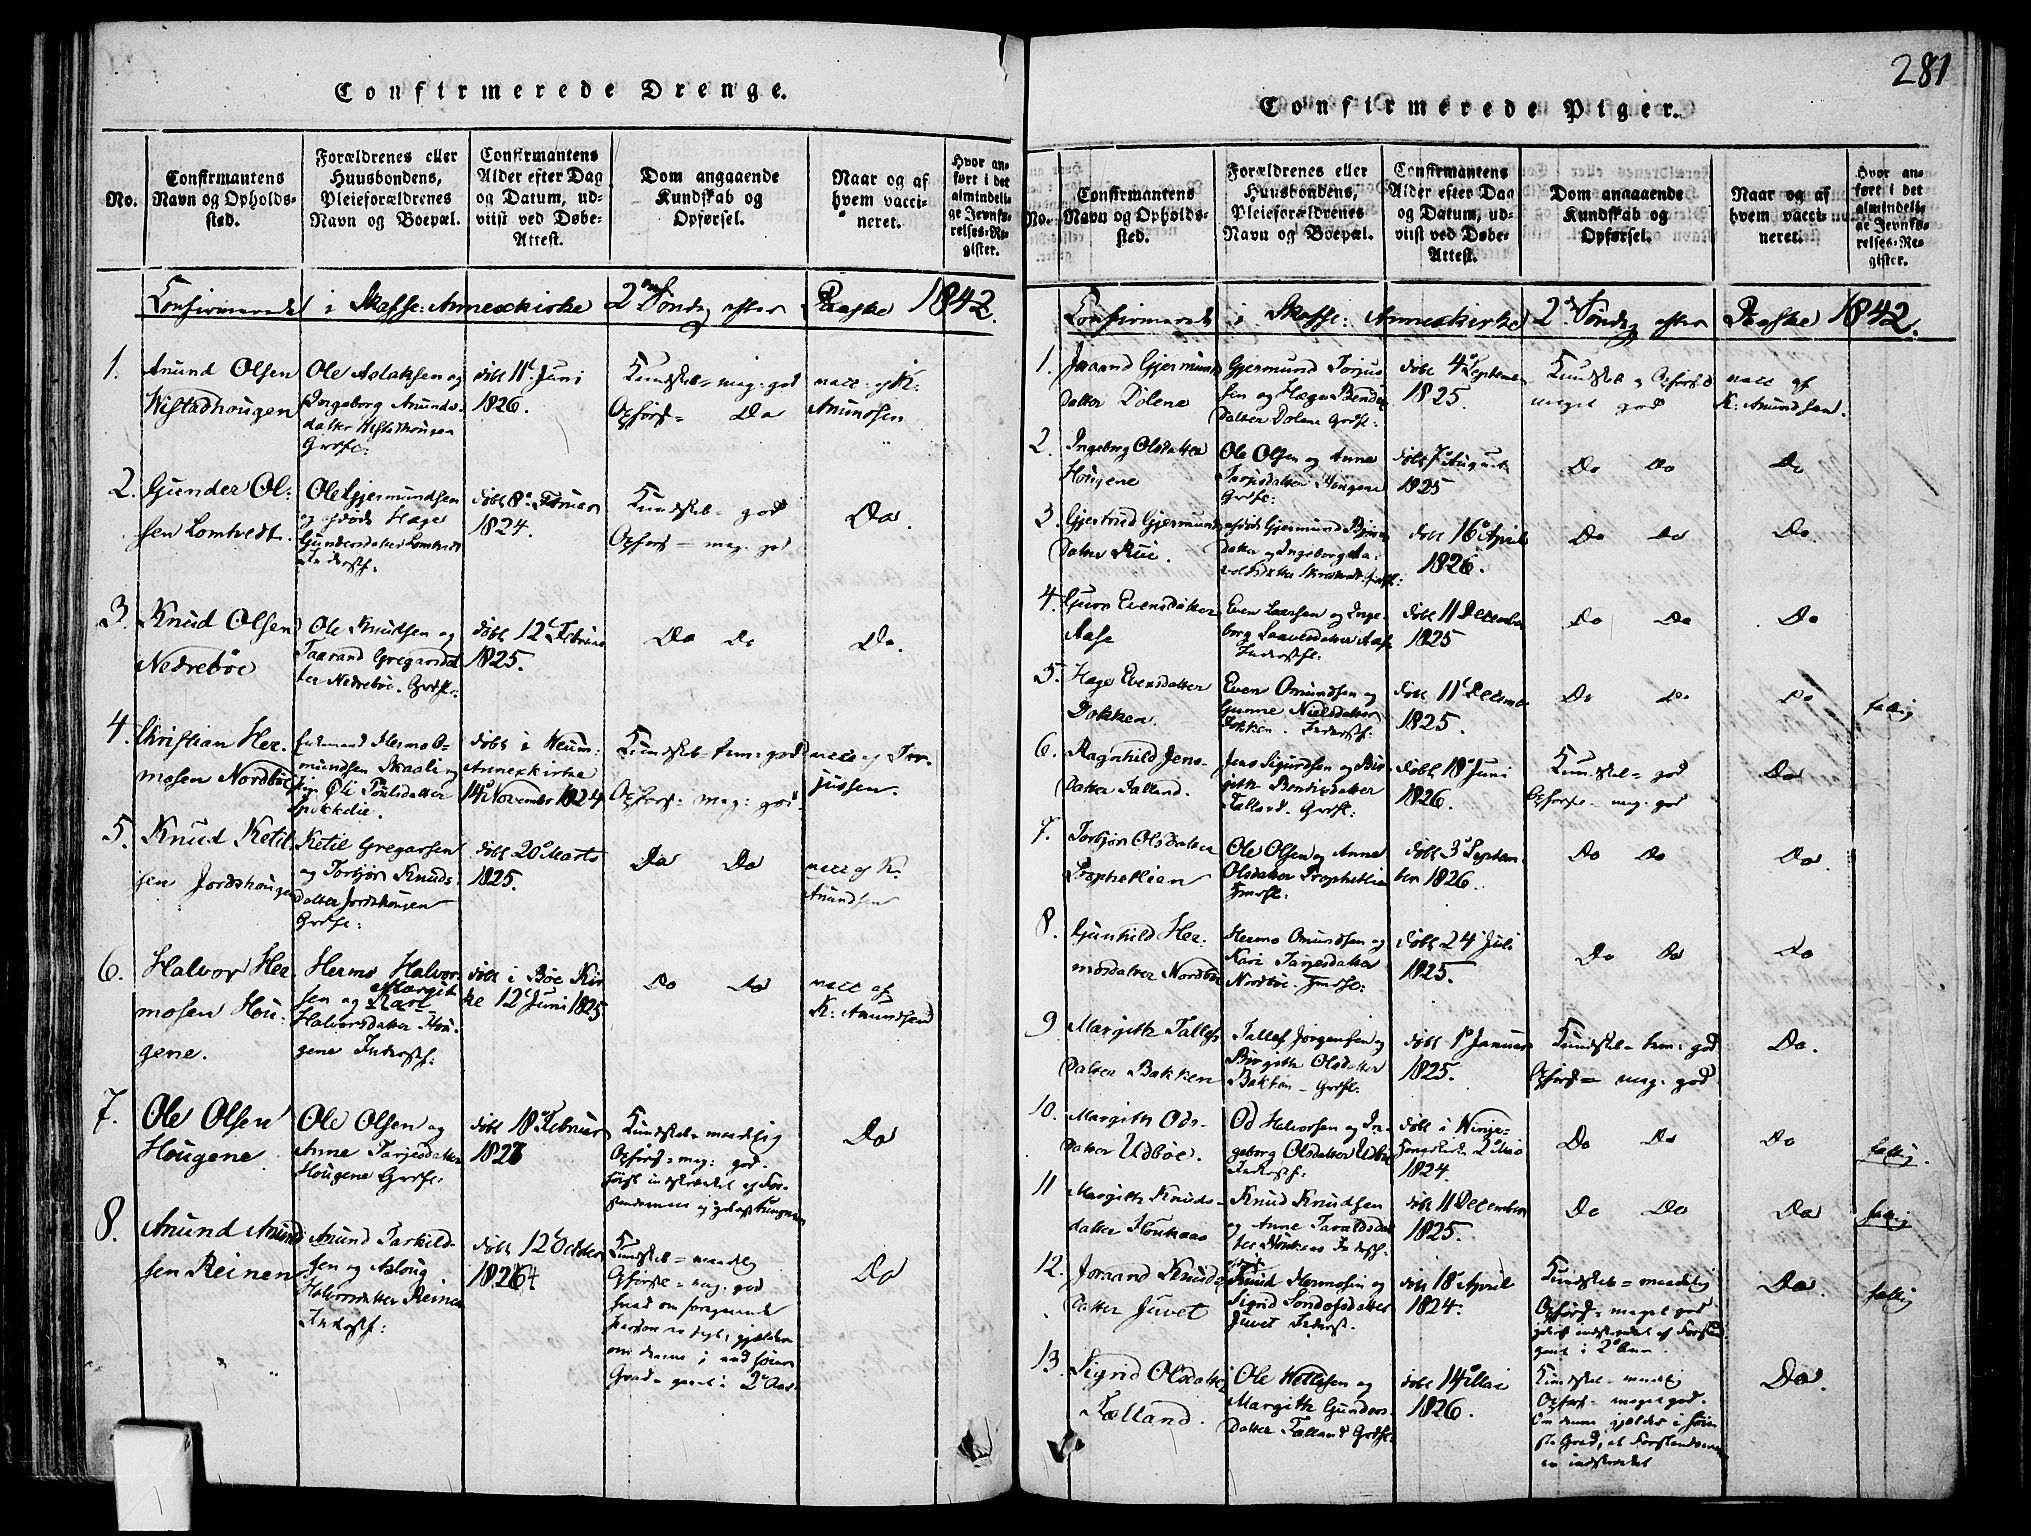 281
Confirmerede Drenge.
No.
Confirmantens
Navn og Opholds-
sted.
Forældrenes eller
Huusbondens,
Pleieforældrenes
Navn og Boepæl.
Confirmantens
Alder efter Dag
og Datum, ud-
viist ved Døbe-
Attest.
Dom angaaende
Kundskab og
Opførsel.
Naar og af
hvem vacci-
neret.
Hvor an-
ført i det
almindeli-
ge Jevnfø-
relses-Re-
gister.
Confirmerede i Skafse Annexkirke 2den Søndag efter Paaske 1842.
1.
Anund Olsen
Wistadhougen
Ole Aslaksen og
Ingeborg Anunds-
datter Wistadhougen
Grdfl:
døbt 11t Juni
1826.
Kundskab = meg: god
Opførs = Do
vacc: af K:
Anundsen
2.
Gunder Ol:
sen Lomtvedt.
Ole Gjermundsen
og afdøde Hæge
Gundersdatter Lomtvedt
Inderstf:
døbt 8de Februar
1824.
Kundskab = god
Opførs = meg: god
Do.
3.
Knud Olsen
Nedrebøe
Ole Knudsen og
Taarand Gregarsdat
ter Nedrebøe. Grdfl:
døbt 12t Februar
1825.
Do Do
Do.
4.
Christian Her.
mosen Nordbøe
Hermo O-
mundsen Skaali og
Poulsdatter
døbt i
Annexkirke
14de November 1824
Kundskab tem: god
Opførs: meg: god.
vacc: af Tor-
jussen.
5.
Knud Ketil
sen Jordshougen
Ketil Gregarsen
og Torbjør Knuds-
datter Jordshougen
Grdfl:
døbt 20de Marts
1825.
Do Do
vacc: af K.
Anundsen
6.
Halvor Her.
mosen Hou:
gene.
Hermo Halvor
Margit
sen og Kari
Halvorsdatter Hou-
gene Inderstf:
døbt i Bøe Kir
ke 12t Juni 1825
Do Do
vacc af
K: Anundsen
7.
Ole Olsen
Hougene
Ole Olsen og
Anne Tarjesdatter
Hougene Grdfl:
døbt 18de Februar
Kundskab = maadelig
Opførs = meg: god.
Do
8.
Anund Anund
sen Reinen
Anund Tarkild-
sen og Asloug
Halvorsdatter Reinen
Inderstf:
døbt 12t October
Kundskab = maadelig
Opførse = meg. god
hvad om foregaaende
Do
Confirmerede Piger.
No.
Confirmantens
Navn og Opholds-
sted.
Forældrenes eller
Huusbondens,
Pleieforældrenes
Navn og Boepæl.
Confirmantens
Alder efter Dag
og Datum, ud-
viist ved Døbe-
Attest.
Dom angaaende
Kundskab og
Opførsel.
Naar og af
hvem vacci-
neret.
Hvor an-
ført i det
almindeli-
ge Jevnfø-
relses-Re-
gister.
Confirmerede i Skafse: Annexkirke 2den Søndag efter Paaske 1842.
1.
Joraand Gjermunds
datter Dolene
Gjermund Torjus
sen og Hæge Bendix
datter Dolene Grdfl:
døbt 4de September
1825.
Kundskab og Opførsel
meget god
vacc af
K. Anundsen.
2.
Ingeborg Olsdatter
Hougene
Ole Olsen og Anne
Tarjesdatter Hougene
Grdfl:
døbt 7de August
1825
Do Do
Do
3.
Gjertrud Gjermunds
datter Rui.
afdøde Gjermund Bjørn
og Ingeborg
døbt 16de April
1826.
Do Do
Do.
4.
Guro Evensdatter
Aase
Even Larsen og Inge
borg Laavesdatter Aase
Inderstfl:
døbt 11 December
1825
Do Do
Do
5.
Hæge Evensdatter
Dokken.
Even Omundsen og
Gunne Nielsdatter
Dokken. Inderstf:
døbt 11t December
1825.
Do Do
Do
fattig
6.
Ragnhild Jens-
datter Talland.
Jens Sigurdsen og Bir
gith Bendixdatter
Talland. Grdfl:
døbt 18de Juni
1826.
Kundskab = god
Opførse = meg: god
Do
7.
Torbjør Olsdatter
Prophetlien
Ole Olsen og Anne
Olsdatter Prophetlien
døbt 3de Septem
ber 1826.
Do Do
Do.
8.
Gunhild Her.
mosdatter Nordbøe
Hermo Omundsen og
Kari Tarjesdatter
Nordbøe.
døbt 24de Juli
1825.
Do Do
Do
9
Margith Tallefs
datter Bakken
Tallef Jørgensen og
Birgith Olsdatter
Bakken - Grdfl:
døbt 1ste Januar
1825.
Kundskab = tem: god
Opførs = meg: god
Do.
10.
Margith Ods-
datter Udbøe.
Od Halvorsen og In
geborg Olsdatter Udbøe
Inderstf:
døbt i Winje
2de Mai
1824.
Do Do
Do
fattig.
11
Margith Knuds-
datter Houkaas
Knud Knudsen
og Anne Taraldsdat
ter Houkaas Inderstf:
døbt 11 December
1825.
Do Do
Do
fattig
12.
Joraand Knuds
datter Juvet
Knud Hermosen og
Sigrid Sondofsdatter
Juvet Inderst.
døbt 18de April
1824.
Kundskab = maadelig
Opførs = meget god
Do.
fattig
13.
Sigrid Olsdatter
Talland.
Ole Kittilsen og
Margith Gunders
datter Talland Grdfl:
døbt 14de Mai
1826.
Kundskab = maadelig
Opførs = meget god.
Do.